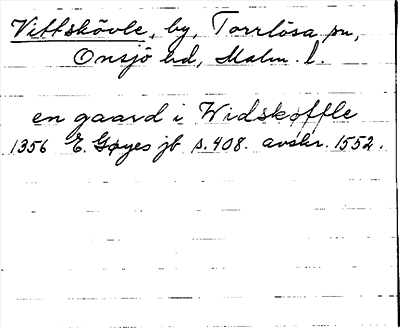 Vittskövle, by, Torrlösa sn,
Onsjö hd, Malm. l.
en gaard i Widskøffle
1356 E. Gøyes jb s. 408. avskr. 1552.